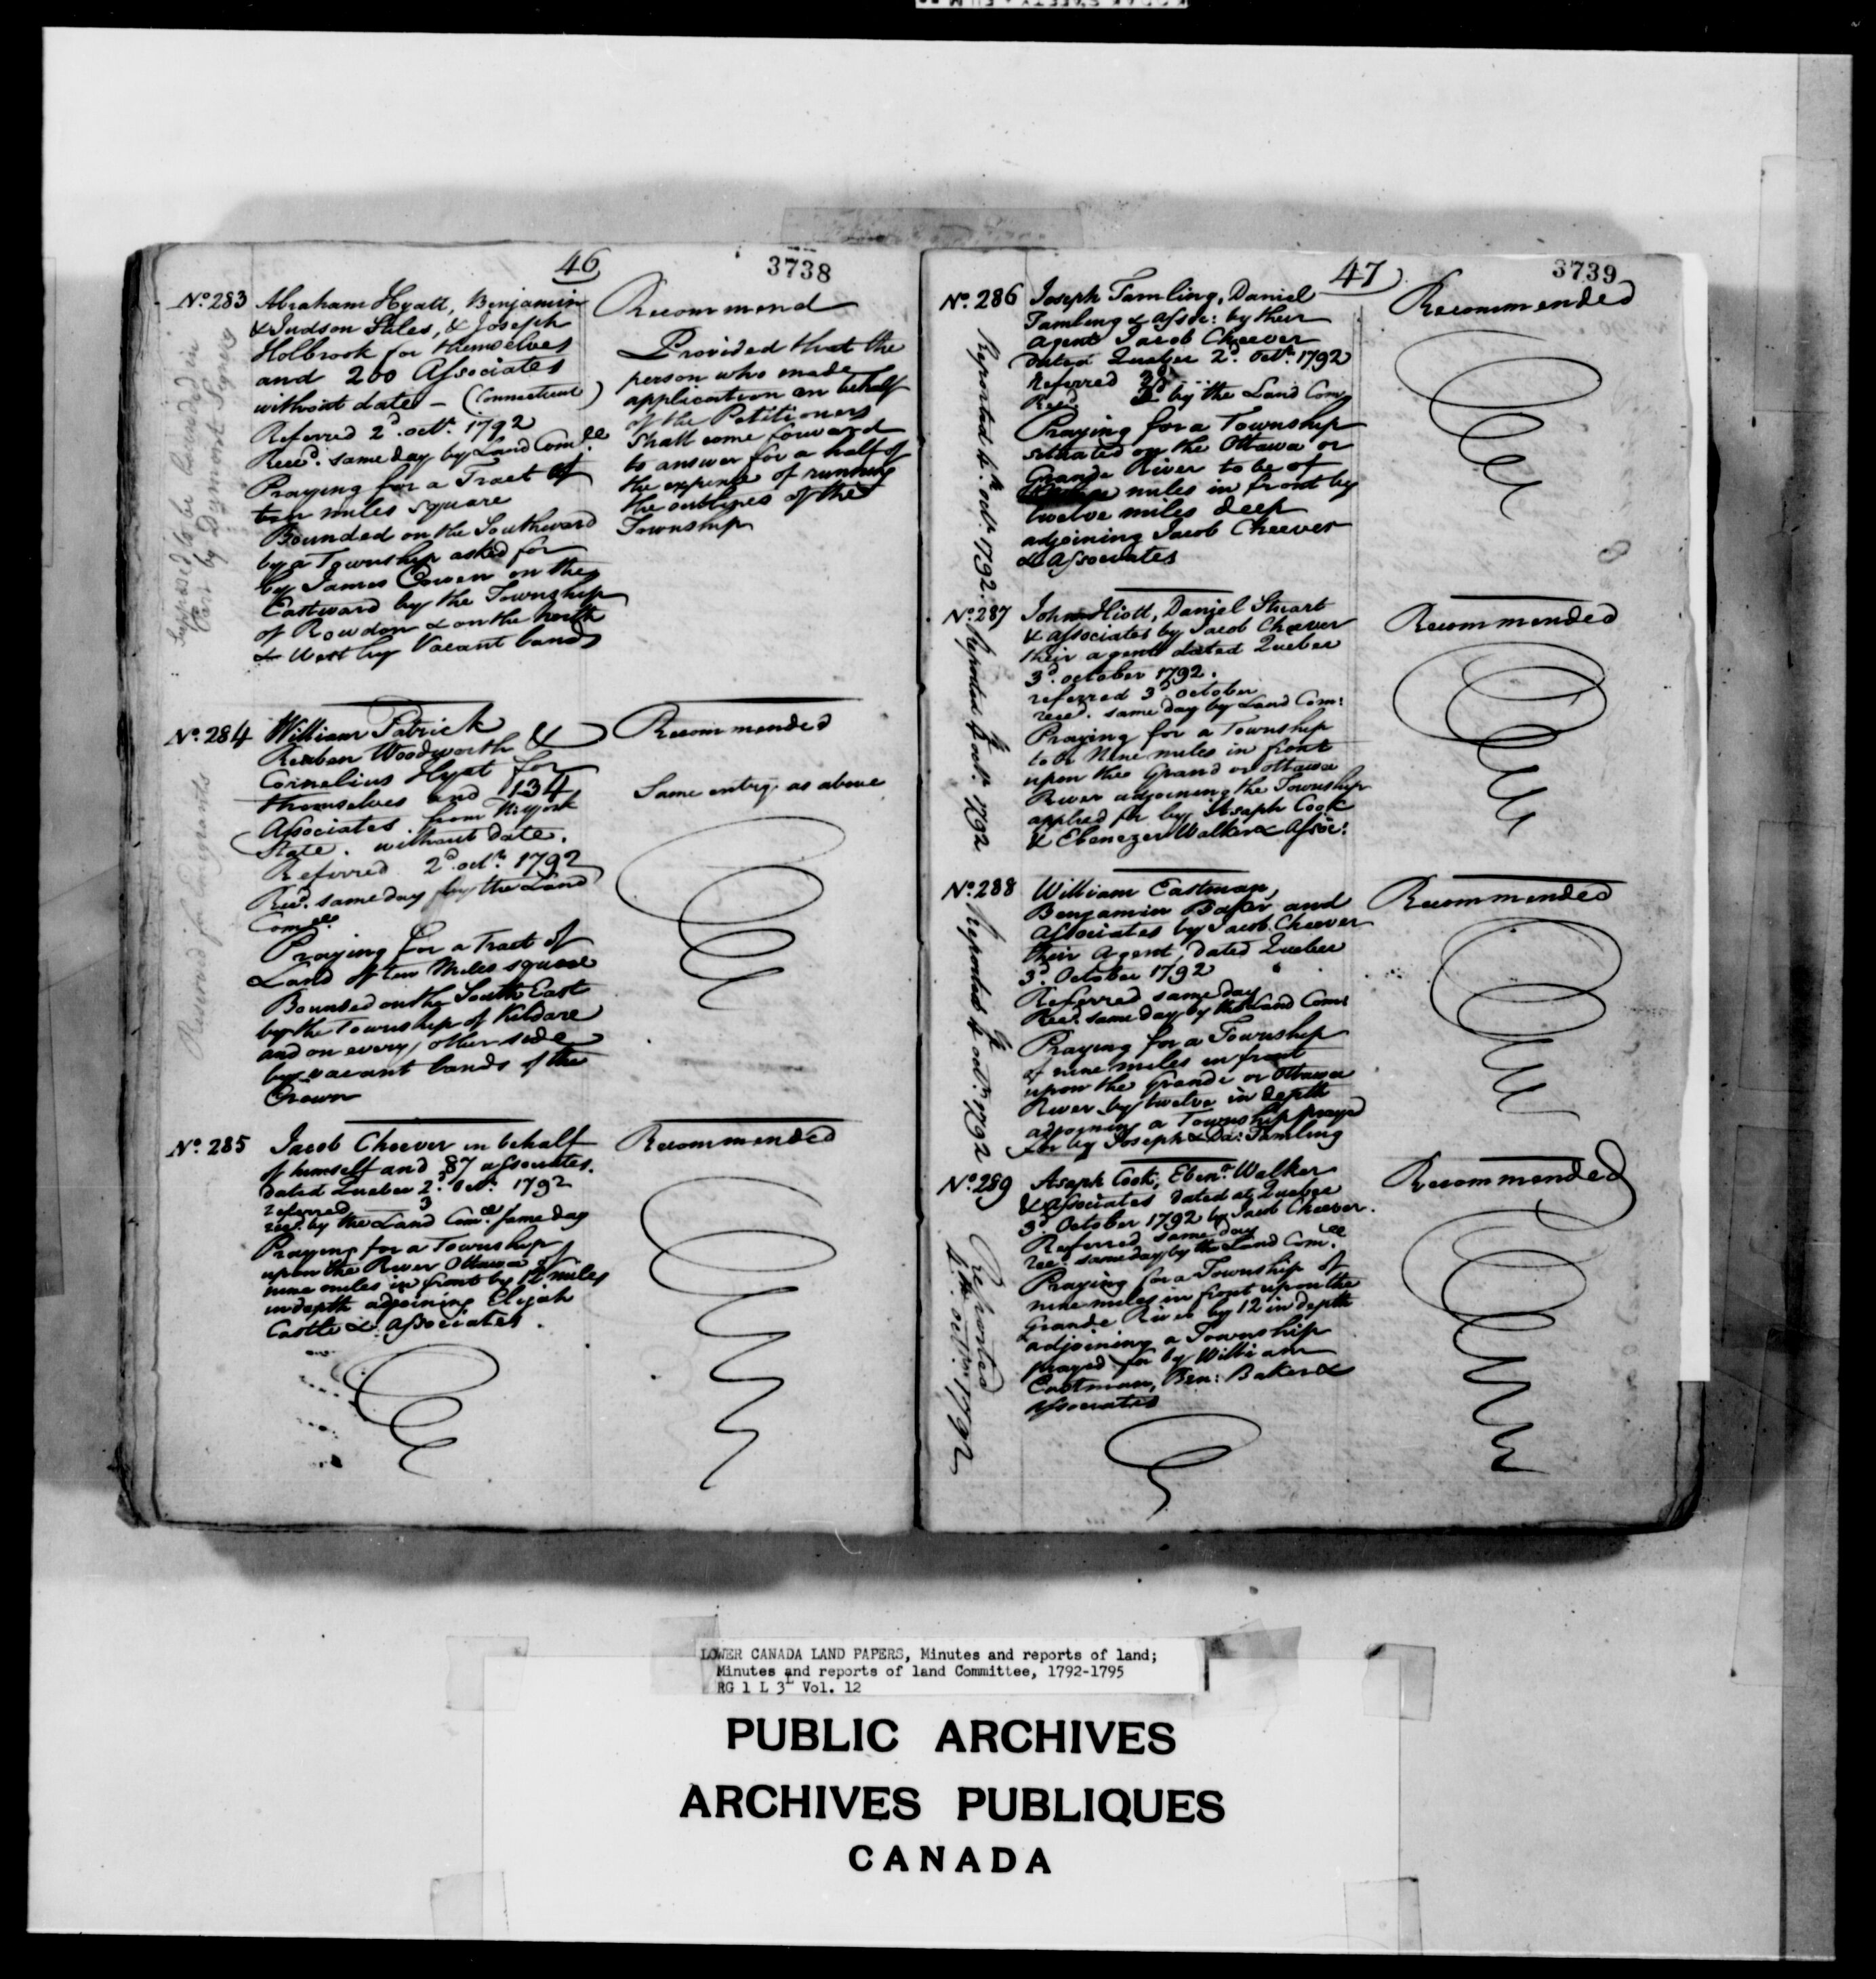 46
3738
Nº 283 Abraham Hyatt, Benjamin
& Judson Stiles, & Joseph
Holbrook for themselves
and 200 Associates
without date – (Connecticut)
Referred 2d. octr. 1792
Rece'd. same day by Land Comtee
Praying for a Tract of
ten miles square
Bounded on the Southward
by a Township asked for
by James Cowen on the
Eastward by the Township
of Rowdon & on the North
& West by Vacant Lands
Supposed to be bounded in
East by Dymont Signery
Recommend
Provided that the
person who made
application on behalf
of the Petitioners
Shall come forward
to answer for a half of
the expense of running
the outlines of the
Township
Nº 284 William Patrick &
Reuben Woodworth &
Cornelius Hyat for
themselves and 134
Associates. from N:york
State. without date.
Referred 2d. octr. 1792
Recd. same day by the Land
Comtee
Praying for a Tract of
Land of ten Miles square
Bounded on the South East
by the Township of Kildare
and on every other side
by vacant lands of the
Crown
Reserved for Emigrants
Recommended
Same entry as above
Nº 285 Jacob Cheever in behalf
of himself and 87 associates.
dated Quebec 2d. Octr. 1792
referred 3
recd. by the Land Comee. same day
Praying for a Township
upon the River Ottawa of
nine miles in front by 12 miles
in depth adjoining Elijah
Castle & Associates.
Recommended
47
3739
Nº 286 Joseph Tamling, Daniel
Tamling & Assoc: by their
agent Jacob Cheever
dated Quebec 2d. octr. 1792
Referred 3d
Recd by the Land Com
Praying for a Township
situated on the Ottawa or
Grande River to be of
miles in front by
twelve miles deep
adjoining Jacob Cheever
& Associates
Reported 4th. octr. 1792.
Recommended
Nº 287 John Hiott, Daniel Stuart
& associates by Jacob Cheever
their agent dated Quebec
3d. october 1792.
referred 3d october
recd. same day by Land Com:
Praying for a Township
to be Nine miles in front
upon the Grand or Ottawa
River adjoining the Township
applied for by Asaph Cook
& Ebenezer Walker & Assoc:
Reported 4th octr. 1792
Recommended
Nº 288 William Eastman,
Benjamin Baker and
Associates by Jacob Cheever
their Agent, dated Quebec
3d. October 1792
Referred same day
Recd. same day by the Land Com:
Praying for a Township
of nine miles in front
upon the Grande or Ottawa
River by twelve in depth
adjoining a Township prayed
for by Joseph & Da: Tamling
Reported 4th octr. 1792
Recommended
Nº 289 Asaph Cook, Ebenr. Walker
& Associates dated at Quebec
3d October 1792 by Jacob Cheever.
Referred same day
recd. same day by the Land Comee
Praying for a Township of
nine miles in front upon the
Grande River by 12 in depth
adjoining a Township
prayed for by William
Eastman, Ben: Baker &
Associates
Reported
4th. octr. 1792
Recommended
LOWER CANADA LAND PAPERS, Minutes and reports of land;
Minutes and reports of land Committee, 1792-1795
RG 1 L 3L Vol. 12
PUBLIC ARCHIVES
ARCHIVES PUBLIQUES
CANADA